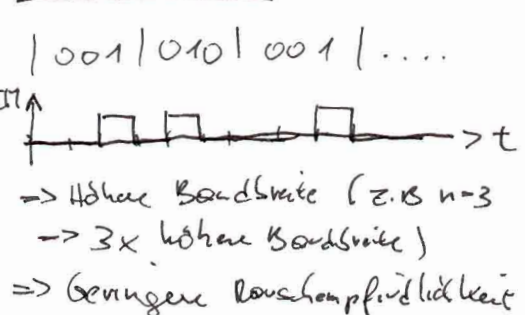 | 001 | 010 | 001 | ....
M
t
=> Höhere Bandbreite (z.B n=3
-> 3x höhere Bandbreite)
=> Geringere Rauschempfindlichkeit